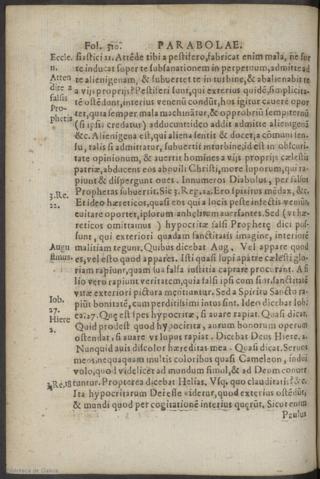 Fol. 510. PARABOLAE.
Eccle. siastici 11. Attēde tibi a pestifero, fabricat enim mala, ne for
11. te inducat super te subsanationem in perpetuum, admitte ad
Atten te alienigenam, & subuertet te in turbine, & abalienabit te
dite a a vijs proprijs? Pestiferi sunt, qui exterius quidē, simplicita-
falsis tē ostēdunt, interius venenū condūt, hos igitur cauere opor
Pro- ter, quia semper mala machinātur, & opprobriū sempiternū
phetis (si ipsi credatur) adducunt: ideo addit admitte alienigenā
&c. Alienigena est, qui aliena sentit & docet, a cōmuni sen-
su, talis si admittatur, subuertit in turbine, id est in obscuri
tate opinionum, & auertit homines a vijs proprijs cælestis
patriæ, abducens eos ab ouili Christi, more luporum, qui ra-
piunt & dispergunt oues. Innumeros Diabolus, per falsos
Prophetas subuertit. Sic 3. Reg. 22. Ero spiritus mēdax, &c.
3. Re. Et ideo hæreticos, quasi eos qui a locis peste infectis veniūt
22. euitare oportet, ipsorum anhelitem auersantes. Sed (vt hæ-
reticos omittamus) hypocritæ falsi Prophetę dici pos-
sunt, qui exteriori quadam sanctitatis imagine, interiorē
Augu malitiam tegunt. Quibus dicebat Aug. Vel appare quod
stinus. es, vel esto quod appares. Isti quasi lupi a patre cælesti glo-
riam rapiunt, quam sua falsa iustitia captare procurant. A fi
lio vero rapiunt veritatem, quia falsi ipsi cum sint sanctitatē
vitæ exteriori pictura mentiantur. Sed a Spiritu Sancto ra-
piūt bonitatē, cum perditissimi intus sint. Ideo dicebat Iob:
Iob. ca. 27. Quę est spes hypocritæ, si auare rapiat. Quasi dicat.
27. Quid prodest quod hypocrita, aurum bonorum operum
Hiere ostendat, si auare vt lupus rapiat. Dicebat Deus Hiere. 2.
2. Nunquid auis discolor hæreditas mea. Quasi dicat. Seruos
meos nequaquam multis coloribus quasi Cameleon, indui
volo, quod videlicet ad mundum simul, & ad Deum conuer
3. Re. 18 tantur. Propterea dicebat Helias. Vsq. quo claudicatis? &c.
Ita hypocritarum Dei esse videtur, quod exterius ostēdūt,
& mundi quod per cogitationē interius querūt. Sicut enim
Paulus
Biblioteca de Galicia